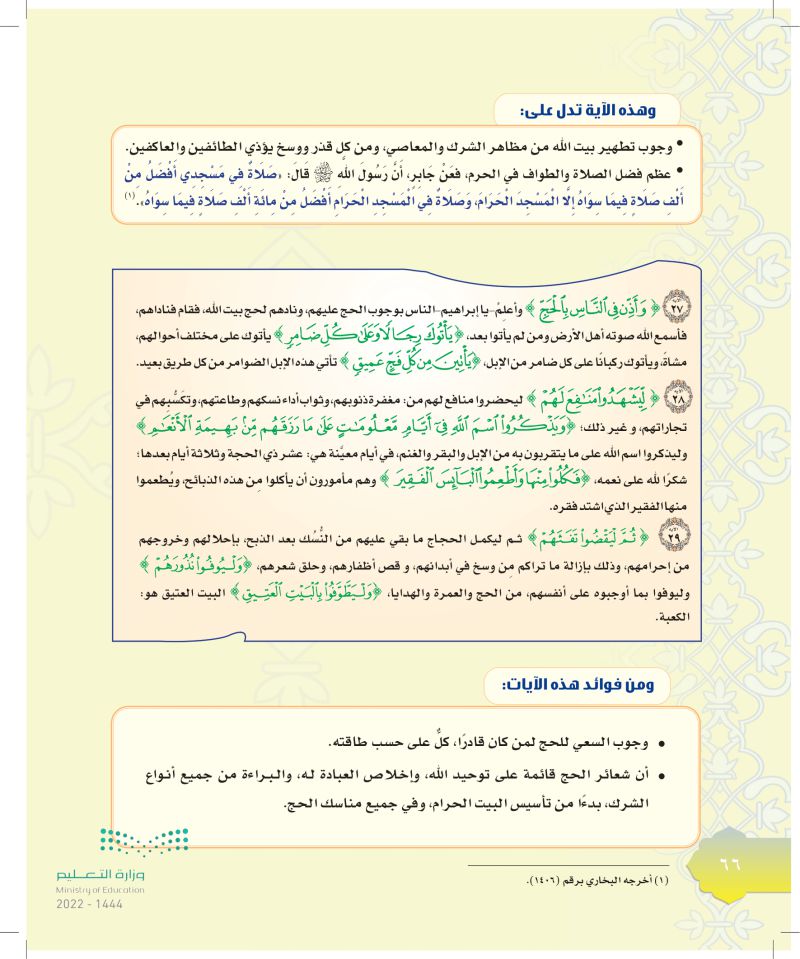 وهذه الآية تدل على:
• وجوب تطهير بيت الله من مظاهر الشرك والمعاصي، ومن كل قذر ووسخ يؤذي الطائفين والعاكفين.
• عظم فضل الصلاة والطواف في الحرم، فعَنْ جَابِرٍ، أَنَّ رَسُولَ الله ﷺ قَالَ: «صَلَاةٌ فِي مَسْجِدِي أَفْضَلُ مِنْ
أَلْفِ صَلَاةٍ فِيمَا سِوَاهُ إِلَّا الْمَسْجِدَ الْحَرَامَ، وَصَلَاةٌ فِي الْمَسْجِدِ الْحَرَامِ أَفْضَلُ مِنْ مِائَةِ أَلْفِ صَلَاةٍ فِيمَا سِوَاهُ».(١)
٢٧ ﴿وَأَذِّن فِي النَّاسِ بِالْحَجِّ﴾ وأعلمْ-يا إبراهيم-الناس بوجوب الحج عليهم، ونادهم لحج بيت الله، فقام فناداهم،
فأسمع الله صوته أهل الأرض ومن لم يأتوا بعد، ﴿يَأْتُوكَ رِجَالًا وَعَلَىٰ كُلِّ ضَامِرٍ﴾ يأتوك على مختلف أحوالهم،
مشاةً، ويأتوك ركبانًا على كل ضامر من الإبل، ﴿يَأْتِينَ مِن كُلِّ فَجٍّ عَمِيقٍ﴾ تأتي هذه الإبل الضوامر من كل طريق بعيد.
٢٨ ﴿لِّيَشْهَدُوا مَنَافِعَ لَهُمْ﴾ ليحضروا منافع لهم من: مغفرة ذنوبهم، وثواب أداء نسكهم وطاعتهم، وتكَسُّبهم في
تجاراتهم، و غير ذلك؛ ﴿وَيَذْكُرُوا اسْمَ اللَّهِ فِي أَيَّامٍ مَّعْلُومَاتٍ عَلَىٰ مَا رَزَقَهُم مِّن بَهِيمَةِ الْأَنْعَامِ﴾
وليذكروا اسم الله على ما يتقربون به من الإبل والبقر والغنم، في أيام معيَّنة هي: عشر ذي الحجة وثلاثة أيام بعدها؛
شكرًا لله على نعمه، ﴿فَكُلُوا مِنْهَا وَأَطْعِمُوا الْبَائِسَ الْفَقِيرَ﴾ وهم مأمورون أن يأكلوا مِن هذه الذبائح، ويُطعموا
منها الفقير الذي اشتد فقره.
٢٩ ﴿ثُمَّ لْيَقْضُوا تَفَثَهُمْ﴾ ثم ليكمل الحجاج ما بقي عليهم من النُّسُك بعد الذبح، بإحلالهم وخروجهم
من إحرامهم، وذلك بإزالة ما تراكم مِن وسخ في أبدانهم، و قص أظفارهم، وحلق شعرهم، ﴿وَلْيُوفُوا نُذُورَهُمْ﴾
وليوفوا بما أوجبوه على أنفسهم، من الحج والعمرة والهدايا، ﴿وَلْيَطَّوَّفُوا بِالْبَيْتِ الْعَتِيقِ﴾ البيت العتيق هو:
الكعبة.
ومن فوائد هذه الآيات:
• وجوب السعي للحج لمن كان قادرًا، كلٌّ على حسب طاقته.
• أن شعائر الحج قائمة على توحيد الله، وإخلاص العبادة له، والبراءة من جميع أنواع
الشرك، بدءًا من تأسيس البيت الحرام، وفي جميع مناسك الحج.
(١) أخرجه البخاري برقم (١٤٠٦).
٦٦
وزارة التعليم
Ministry of Education
2022 - 1444